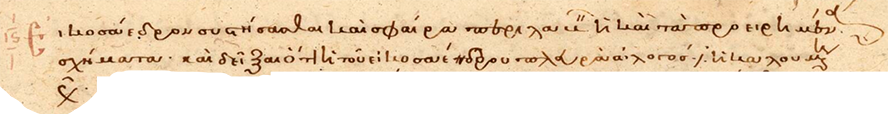 Εἰκοσάεδρον συστήσασθαι καὶ σφαίρα περιλαβεῖν ἧ καὶ τὰ προειρημένα
σχήματα· καὶ δεῖξαι ὅτι ἡ τοῦ εἰκοσαέδρου πλευρὰ ἄλογός ἐστιν ἡ καλουμένη